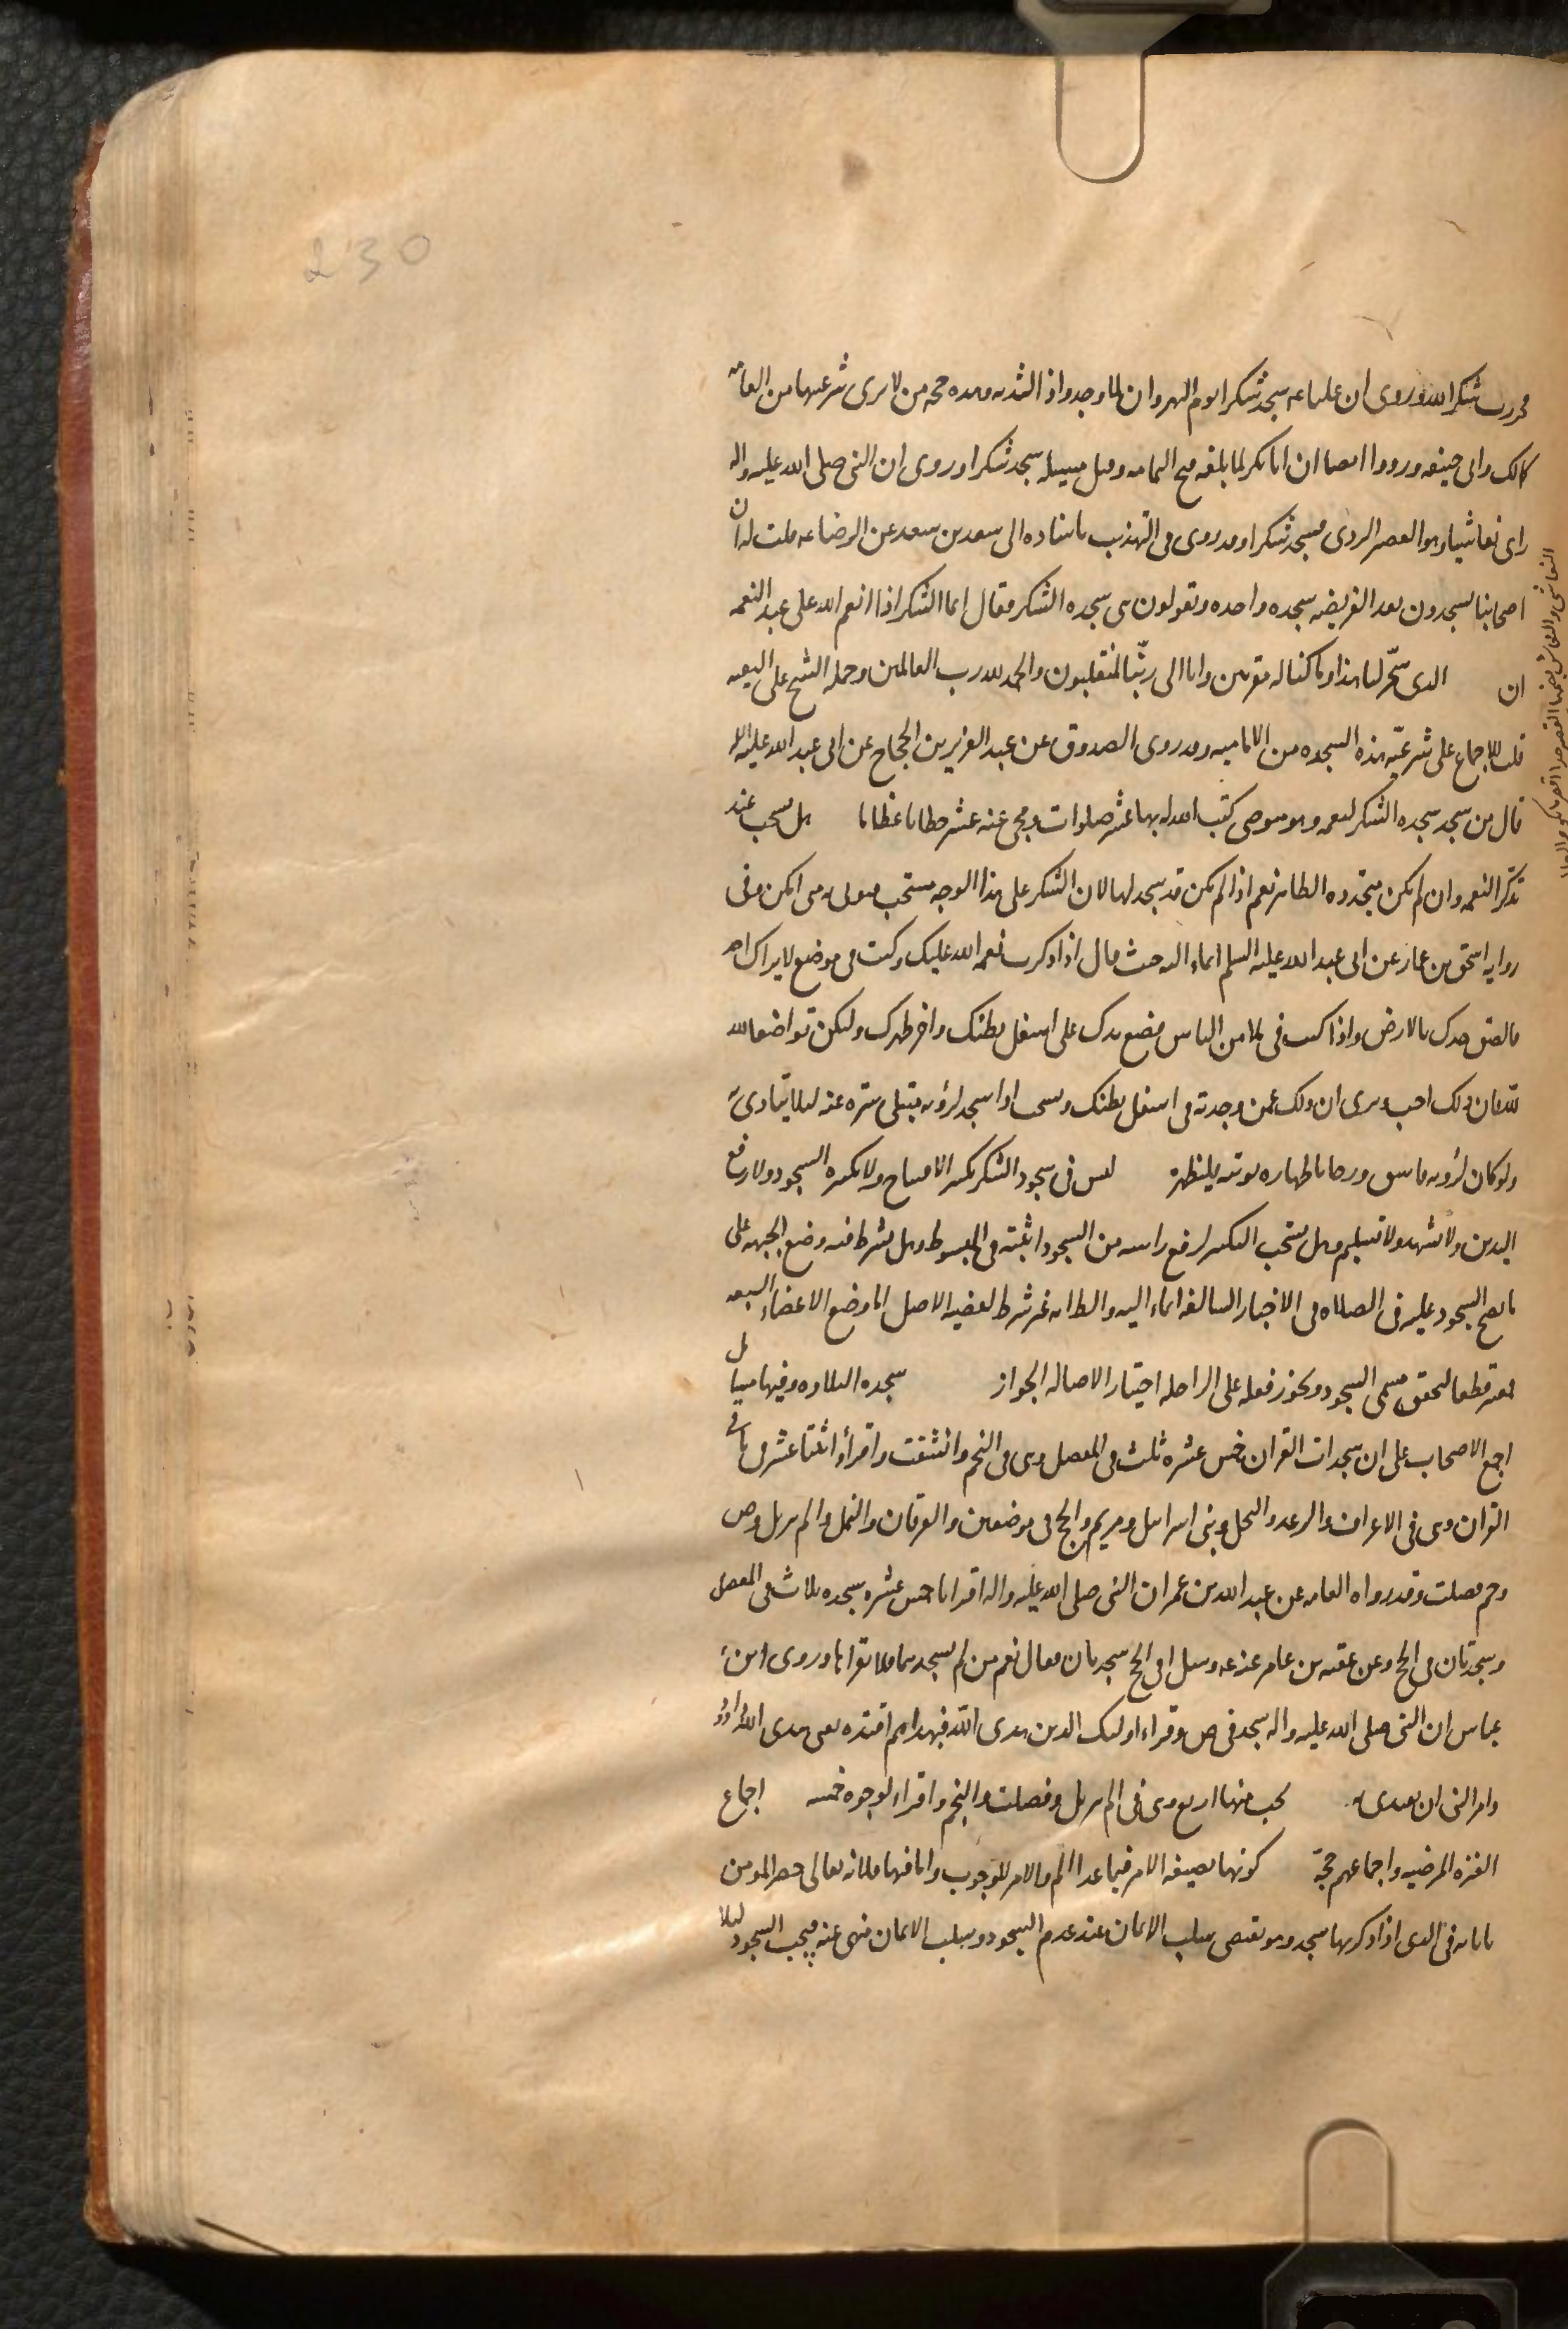 230
فخررت شكرا لله وروى ان عليا عه سجد شكرا يوم النهروان لما وجدوا ذا الثديه وهذه حجه من لا يرى شرعيتها من العامه
كمالك وابى حنيفه ورووا ايضا ان ابا بكر لما بلغه فتح اليمامه وقتل مسيلمه سجد شكرا وروى ان النبى صلى الله عليه واله
راى نغاشيا وهو القصير الزرى فسجد شكرا وقد روى فى التهذيب باسناده الى سعد بن سعد عن الرضا عه قلت له ان
اصحابنا يسجدون بعد الفريضه سجده واحده ويقولون هى سجده الشكر فقال انما الشكر اذا انعم الله على عبد النعمه
ان الذى سخّر لنا هذا وما كنا له مقرنين وانا الى ربّنا لمنقلبون والحمد لله رب العالمين وحمله الشيخ على التقيه
قلت للاجماع على شرعيّه هذه السجده من الاماميه وقد روى الصدوق عن عبد العزيز بن الحجاج عن ابى عبد الله عليه الم
قال من سجد سجده الشكر لنعمه وهو متوضى كتب الله له بها عشر صلوات ومحى عنه عشر خطايا عظاما هل يستحب عند
تذكر النعمه وان لم يكن متجدده الظاهر نعم اذا لم يكن قد سجد لها لان الشكر على هذا الوجه مستحب فيؤتى به متى امكن وفى
روايه اسحق بن عمار عن ابى عبد الله عليه السلم ايماء اليه حيث قال اذا ذكرت نعمه الله عليك وكنت فى موضع لا يراك احد
فالصق خدك بالارض واذا كنت فى ملا من الناس فضع يدك على اسفل بطنك واحن ظهرك وليكن تواضعا لله
للّه فان ذلك احب وترى ان ذلك غمز وجدته فى اسفل بطنك ويستحب اذا سجد لرؤيه مبتلى ستره عنه لئلا يتاذى به
ولو كان لرؤيه فاسق ورجا باظهاره توبته فليظهره ليس فى سجود الشكر تكبير الافتتاح ولا تكبيره السجود ولا رفع
اليدين ولا تشهد ولا تسليم وهل يستحب التكبير لرفع راسه من السجود اثبته فى المبسوط وهل يشترط فيه وضع الجبهه على
ما يصح السجود عليه فى الصلاه فى الاخبار السالفه ايماء اليه والظاهر غير شرط لقضيه الاصل اما وضع الاعضاء السبعه
فمعتبر قطعا لتحقق مسمى السجود ويجوز فعله على الراحله اختيارا لاصاله الجواز سجده التلاوه وفيها مسايل
اجمع الاصحاب على ان سجدات القران خمس عشره ثلث فى المفصل وهى فى النجم وانشقت واقرأ واثنتا عشر فى باقى
القران وهى فى الاعراف والرعد والنحل وبنى اسرايل ومريم والحج فى موضعين والفرقان والنمل والم تنزيل وص
وحم فصلت وقد رواه العامه عن عبد الله بن عمر ان النبى صلى الله عليه واله اقراه خمس عشره سجده ثلاث فى المفصل
وسجدتان فى الحج وعن عقبه بن عامر عنه عه وسئل افى الحج سجدتان فقال نعم من لم يسجدهما فلا يقراها وروى ابن
عباس ان النبى صلى الله عليه واله سجد فى ص وقراء اولئك الذين هدى الله فبهداهم اقتده يعنى هدى الله داود
وامر النبى ان يهتدى به يجب منها اربع وهى فى الم تنزيل وفصلت والنجم واقراء لوجوه خمسه اجماع
العتره المرضيه واجماعهم حجة كونها بصيغه الامر فيما عدا الم والامر للوجوب واما فيها فلانه تعالى حصر المومن
باياته فى الذى اذا ذكر بها سجد وهو يقتضى سلب الايمان عند عدم السجود وسلب الايمان منهى عنه فيجب السجود لئلا